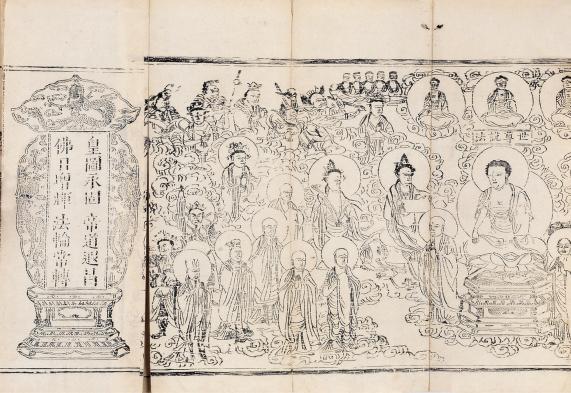 世尊說法
皇圖永固帝道遐昌
佛日增輝法輪常轉